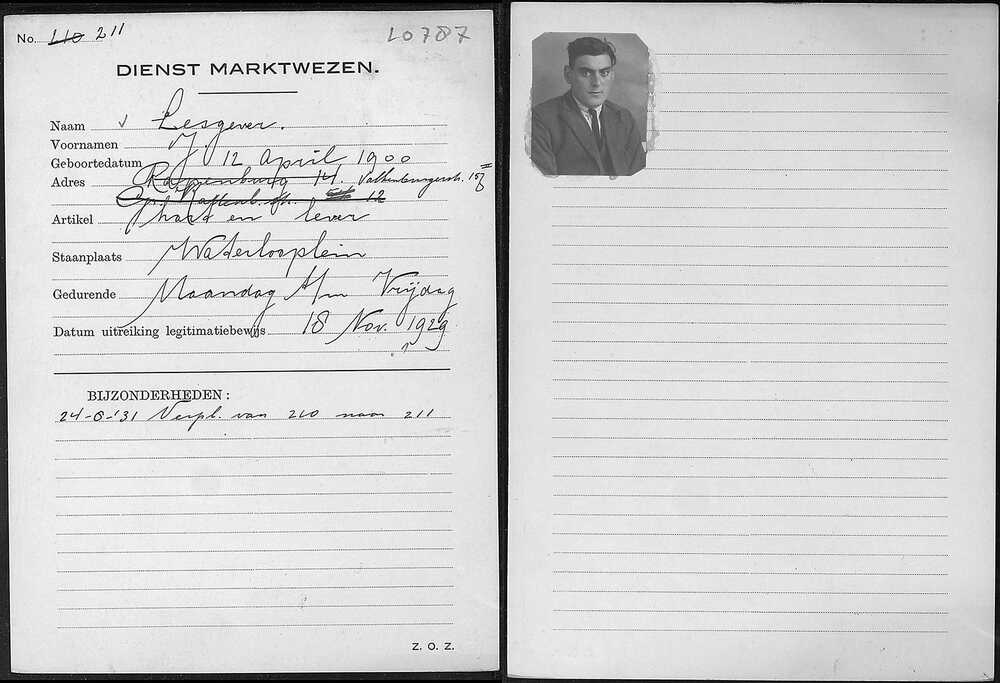 No. 210 211
10787
DIENST MARKTWEZEN.
Naam Lesgever.
Voornamen J.
Geboortedatum 12 April 1900
Adres Rapenburg 14. Valkenburgerstr. 157 II
12
Artikel hart en lever
Staanplaats Waterlooplein
Gedurende Maandag t/m Vrijdag
Datum uitreiking legitimatiebewijs 18 Nov. 1929
BIJZONDERHEDEN:
24-6-'31 Verpl. van 210 naar 211
Z. O. Z.